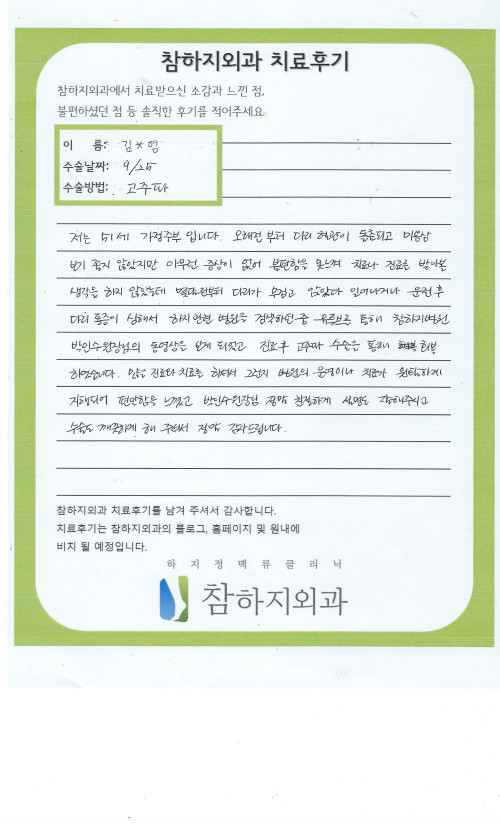 참하지외과 치료후기
참하지외과에서 치료받으신 소감과 느낀 점,
불편하셨던 점 등 솔직한 후기를 적어주세요.
이 름: 김*영
수술날짜: 9/25
수술방법: 고주파
저는 51세 가정주부 입니다. 오래전부터 다리 혈관이 돌출되고 미용상
보기 좋지 않았지만 아무런 증상이 없어 불편함을 못느껴 치료나 진료를 받아볼
생각을 하지 않았는데 몇달전부터 다리가 무겁고 앉았다 일어나거나 운전후
다리 통증이 심해서 하지관련 병원을 검색하던중 유튜브를 통해 참하지병원
박인수원장님의 동영상을 보게 되었고 진료후 고주파 수술을 통해 회복
하였습니다. 많은 진료와 치료를 하여서 그런지 병원의 운영이나 치료가 원활하게
진행되어 편안함을 느꼈고 박인수원장님 정말 친절하게 설명도 잘해주시고
수술도 깨끗하게 해 주셔서 정말 감사드립니다.
참하지외과 치료후기를 남겨 주셔서 감사합니다.
치료후기는 참하지외과의 블로그, 홈페이지 및 원내에
비치 될 예정입니다.
하지정맥류클리닉
참하지외과